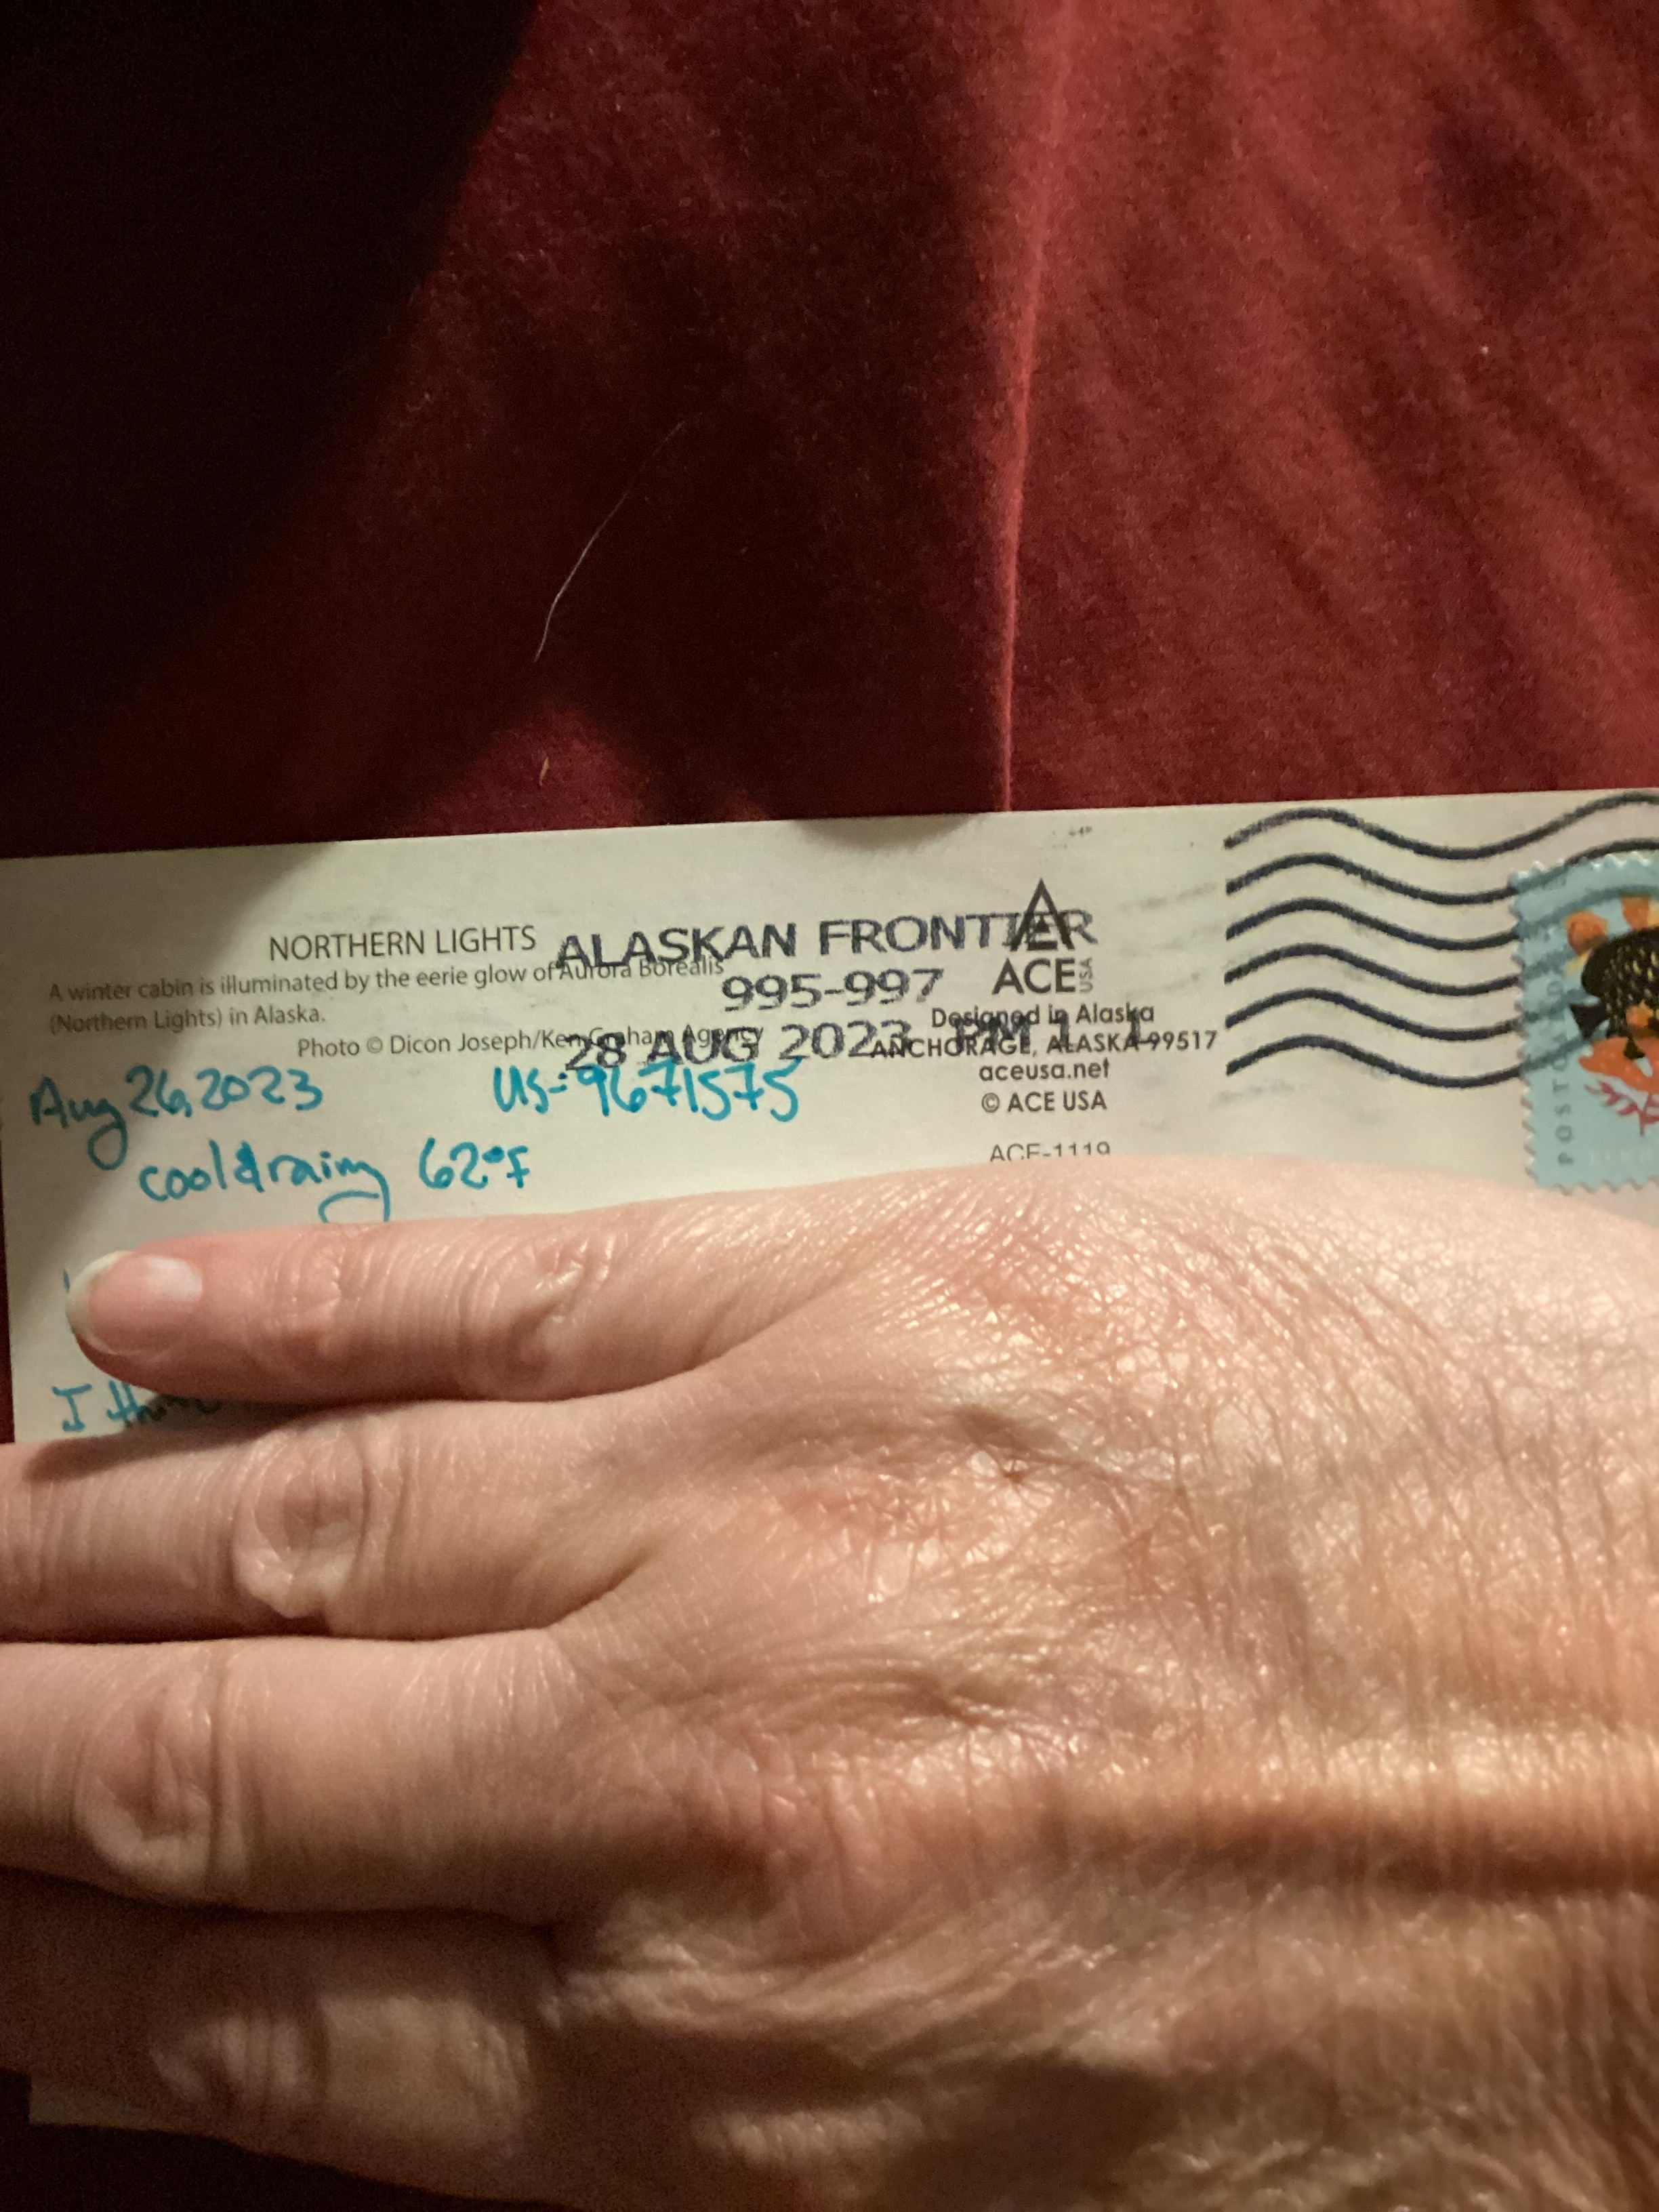 NORTHERN LIGHTS
A winter cabin is illuminated by the eerie glow of Aurora Borealis
(Northern Lights) in Alaska.
Photo © Dicon Joseph/Ken Graham Agency
ALASKAN FRONTIER
995-997
28 AUG 2023 PM 1 L
ACE USA
Designed in Alaska
ANCHORAGE, ALASKA 99517
aceusa.net
© ACE USA
ACE-1119
Aug 26, 2023 US-9671575
cool & rainy 62°F
I